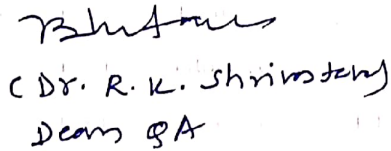 ( Dr. R. K. Shrivastav)
Dean QA